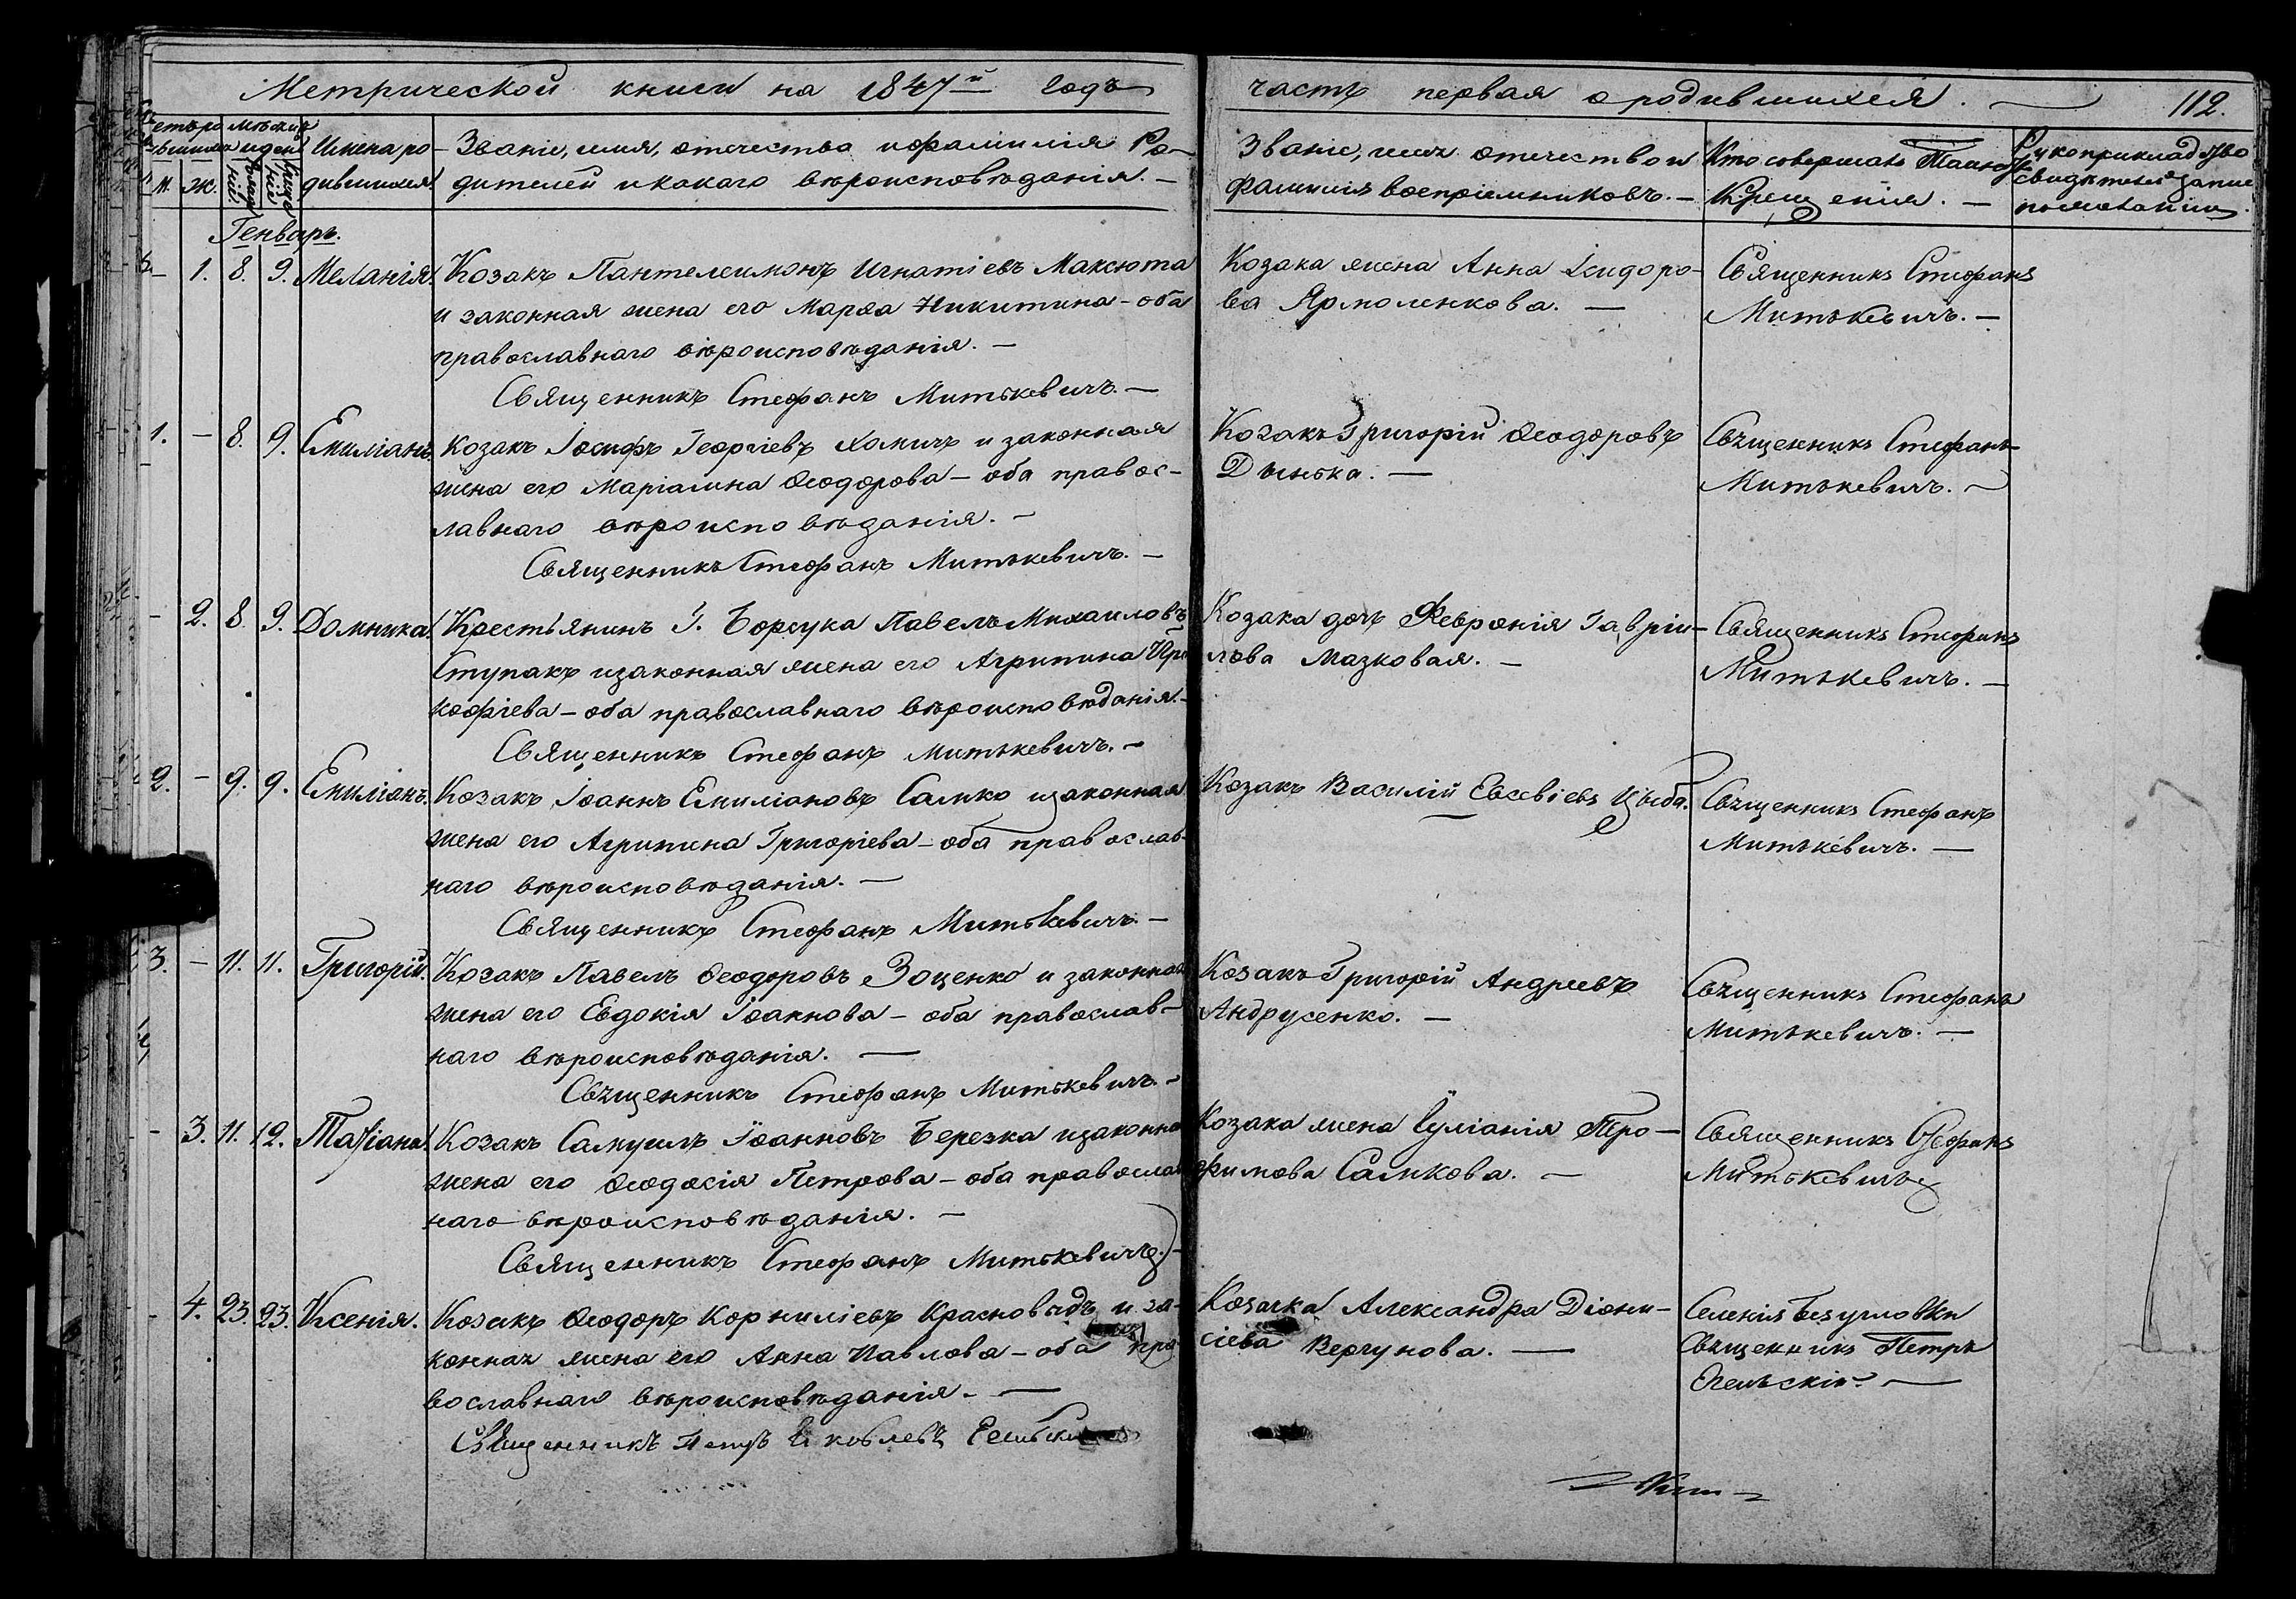 Метрической книги на 1847й годъ
часть первая о родившихся. 112.
М. Ж.
Имена ро-
дившихся.
Званіе, имя, отечество и фамилія Ро-
дителей и какаго вѣроисповѣданія. —
Званіе, имя отечество и
фамилія воспріемниковъ. —
Кто совершалъ Таинство
Крещенія. —
Рукоприкладство
свидѣтелей записи
по желанію.
Генварь.
— 1. 8. 9. Меланія. Козакъ Пантелеимонъ Игнатіевъ Максюта
и законная жена его Марѳа Никитина — оба
православнаго вѣроисповѣданія. —
Священникъ Стефанъ Митькевичъ. —
Козака жена Анна Исидоро-
ва Ярмоленкова. —
Священникъ Стефанъ
Митькевичъ. —
1. — 8. 9. Емиліанъ. Козакъ Іосифъ Георгіевъ Хомичъ и законная
жена его Маріамна Ѳеодорова — оба правос-
лавнаго вѣроисповѣданія. —
Священникъ Стефанъ Митькевичъ. —
Козакъ Григорій Ѳеодоровъ
Дынька. —
Священникъ Стефанъ
Митькевичъ. —
— 2. 8. 9. Домника. Крестьянинъ Г. Борсука Павелъ Михаиловъ
Ступакъ и законная жена его Агрипина Про
кофіева — оба православнаго вѣроисповѣданія. —
Священникъ Стефанъ Митькевичъ. —
Козака дочь Февронія Гавріи-
лова Мазковая. —
Священникъ Стефанъ
Митькевичъ. —
2. — 9. 9. Емиліанъ. Козакъ Іоаннъ Емиліановъ Самко и законная
жена его Агрипина Григоріева — оба православ-
наго вѣроисповѣданія. —
Священникъ Стефанъ Митькевичъ. —
Козакъ Василій Евсевіевъ Цыба.
Священникъ Стефанъ
Митькевичъ. —
3. — 11. 11. Григорій. Козакъ Павелъ Ѳеодоровъ Зоценко и законная
жена его Евдокія Іоаннова — оба православ-
наго вѣроисповѣданія. —
Священникъ Стефанъ Митькевичъ. —
Козакъ Григорій Андреевъ
Андрусенко. —
Священникъ Стефанъ
Митькевичъ. —
— 3. 11. 12. Татіана. Козакъ Самуилъ Іоанновъ Березка и законная
жена его Ѳеодосія Петрова — оба православ
наго вѣроисповѣданія. —
Священникъ Стефанъ Митькевичъ. —
Козака жена Іуліанія Тро-
фимова Самкова. —
Священникъ Стефанъ
Митькевичъ
— 4. 23. 23. Ксенія. Козакъ Ѳеодоръ Корниліевъ Красновидъ и за-
конная жена его Анна Павлова — оба пра-
вославнаго вѣроисповѣданія. —
Священникъ Петръ Яковлевъ
Козачка Александра Діони-
сіева Вергунова. —
Селенія Безугловки
Священникъ Петръ